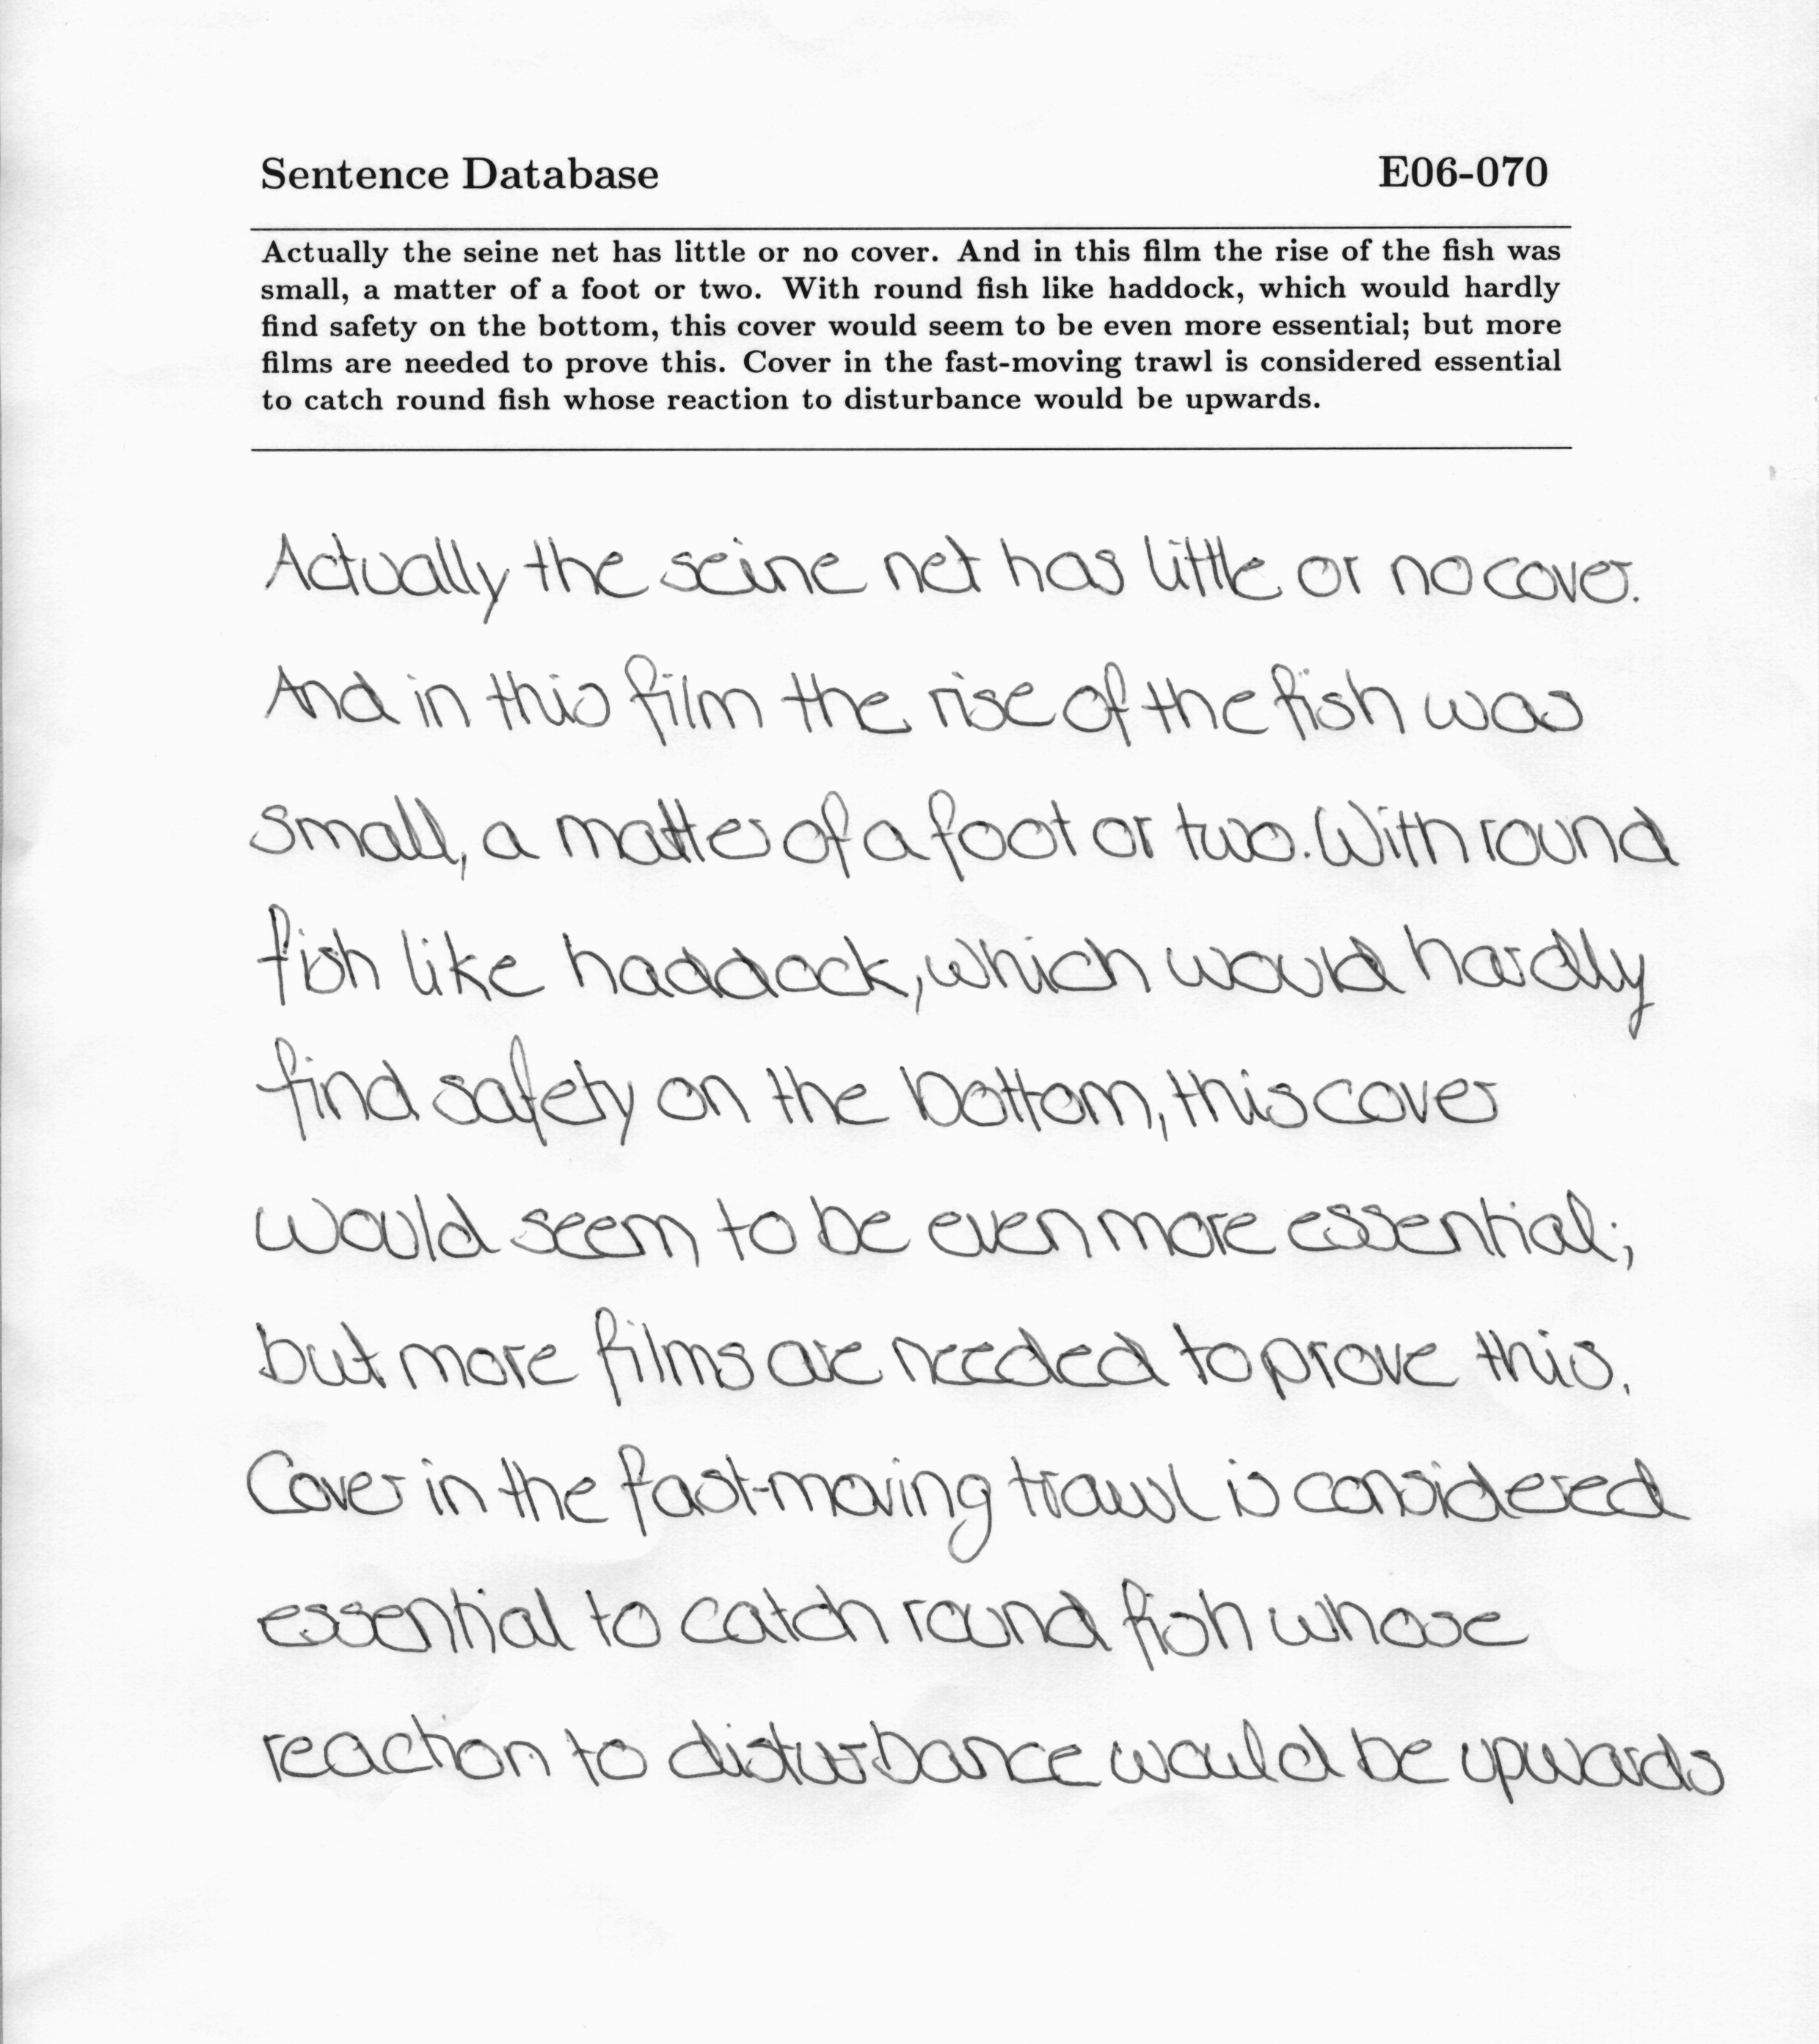 Sentence Database E06-070
Actually the seine net has little or no cover. And in this film the rise of the fish was
small, a matter of a foot or two. With round fish like haddock, which would hardly
find safety on the bottom, this cover would seem to be even more essential; but more
films are needed to prove this. Cover in the fast-moving trawl is considered essential
to catch round fish whose reaction to disturbance would be upwards.
Actually the seine net has little or no cover.
And in this film the rise of the fish was
small, a matter of a foot or two. With round
fish like haddock, which would hardly
find safety on the bottom, this cover
would seem to be even more essential;
but more films are needed to prove this.
Cover in the fast-moving trawl is considered
essential to catch round fish whose
reaction to disturbance would be upwards